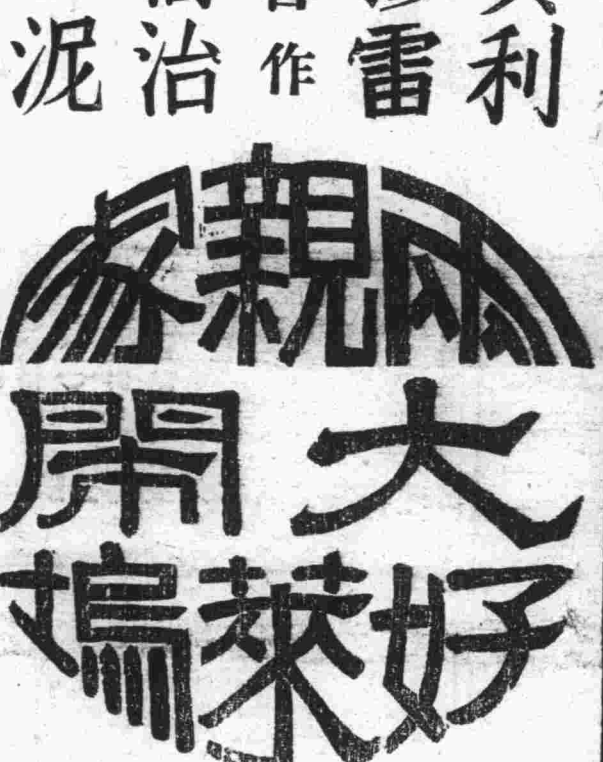 利雷作治泥
兩親家
大鬧
好萊塢